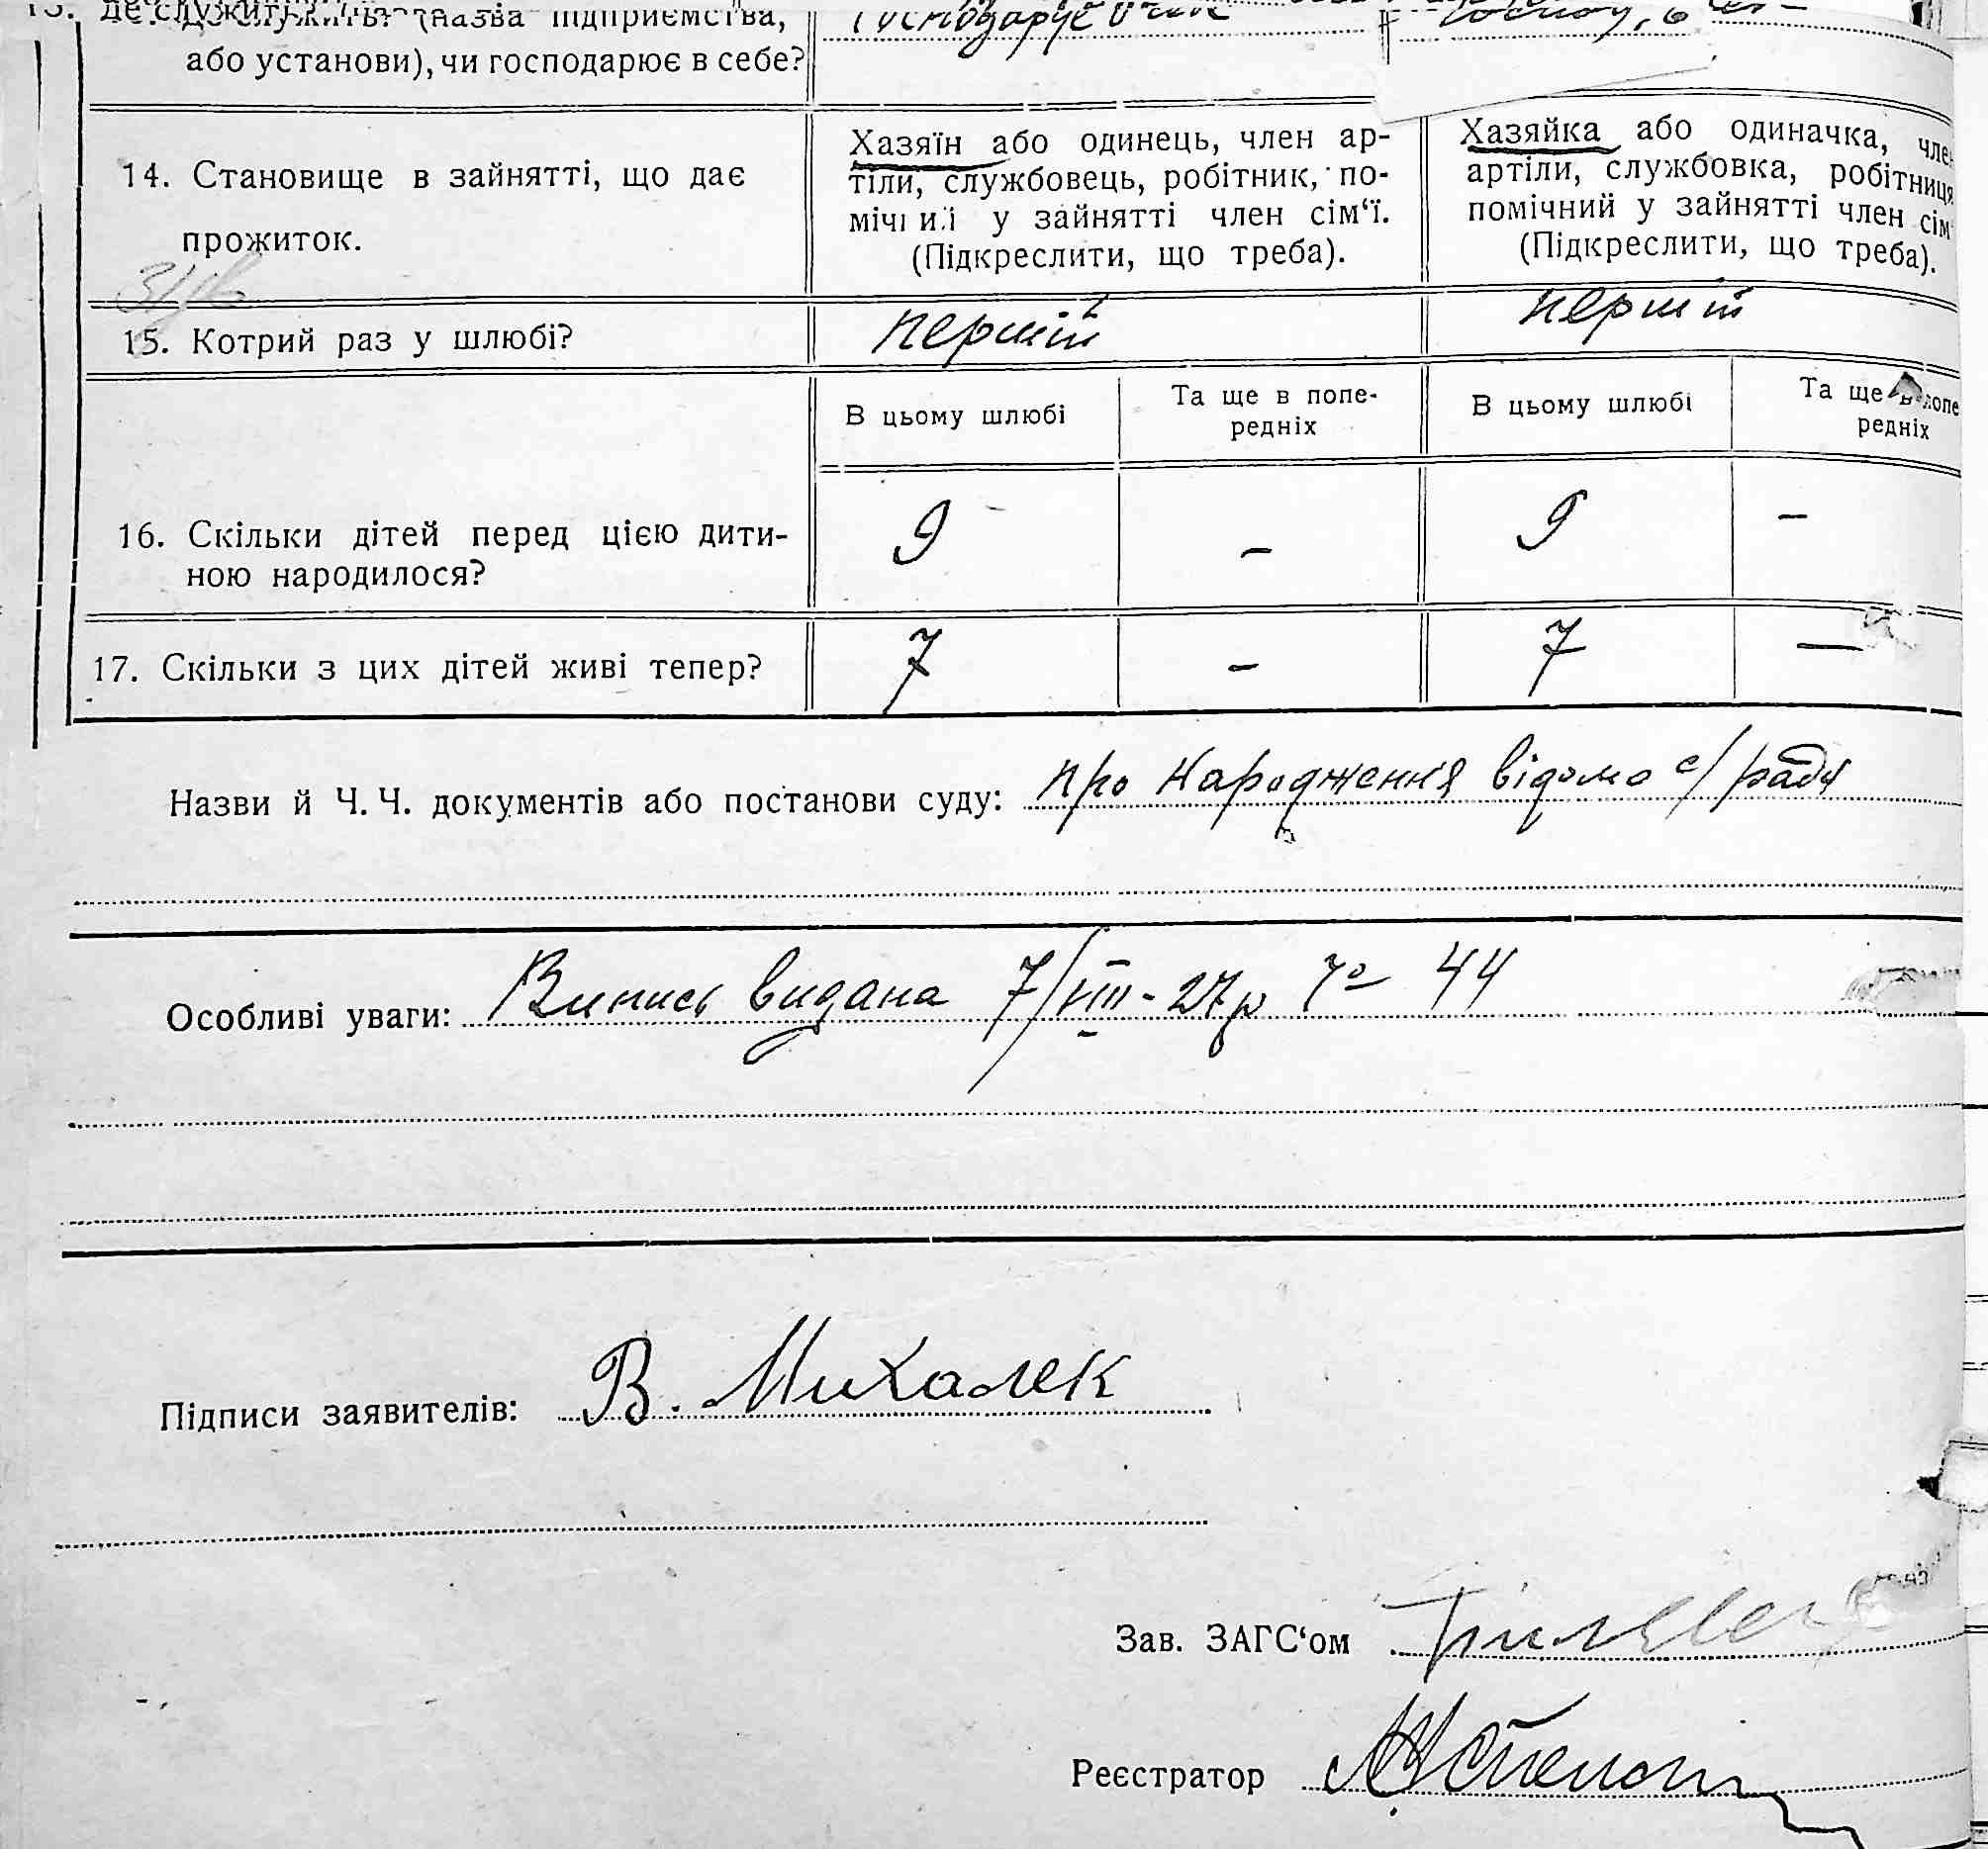 13. Де служить? (назва підприємства,
або установи), чи господарює в себе?
Господарює
14. Становище в зайнятті, що дає
прожиток.
Хазяїн або одинець, член ар-
тіли, службовець, робітник, по-
мічний у зайнятті член сім‘ї.
(Підкреслити, що треба).
Хазяйка або одиначка, член
артіли, службовка, робітниця
помічний у зайнятті член сім‘
(Підкреслити, що треба).
15. Котрий раз у шлюбі?
перший
перший
В цьому шлюбі
Та ще в попе-
редніх
В цьому шлюбі
Та ще в попе
редніх
16. Скільки дітей перед цією дити-
ною народилося?
9 - 9 -
17. Скільки з цих дітей живі тепер?
7 - 7 —
Назви й Ч. Ч. документів або постанови суду: про народження відомо с/раді
Особливі уваги: Випись видана 7/VIII-27р 44
Підписи заявителів: В. Михалек
Зав. ЗАГС‘ом
Реєстратор